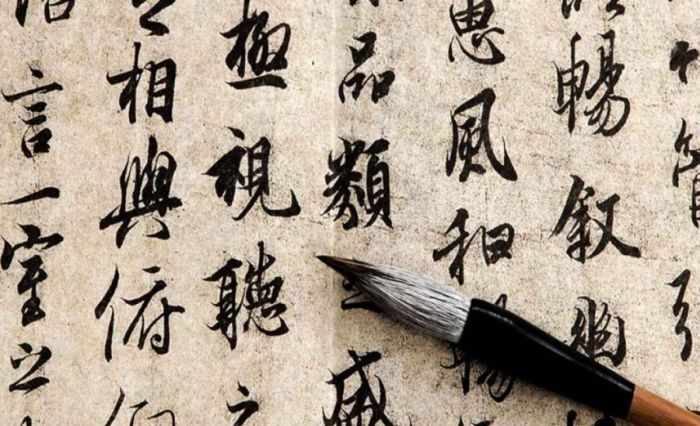 暢叙幽
惠風和暢
品類之盛
極視聽之
之相與俯仰
言一室之